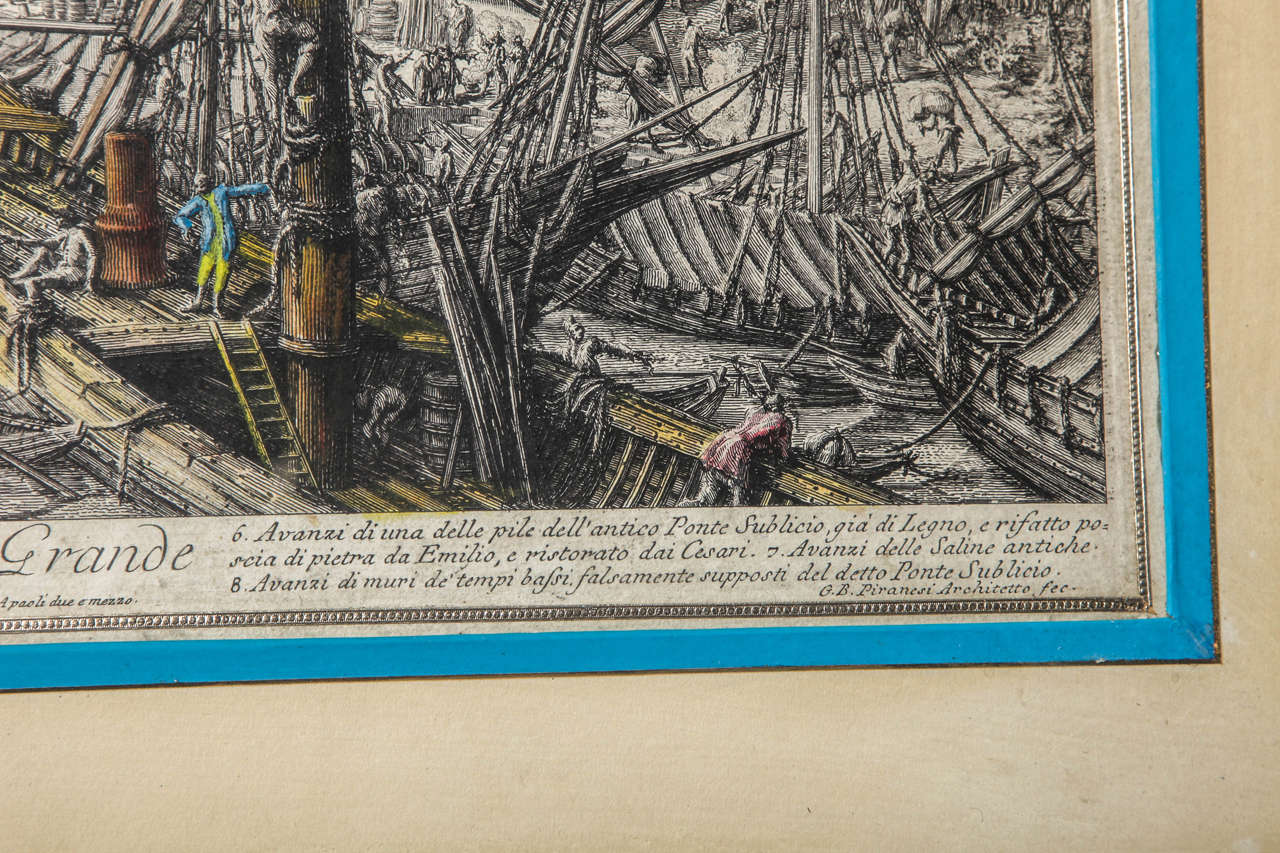 Grande
6. Avanzi di una delle pile dell'antico Ponte Sublicio, già di Legno, e rifatto po=
scia di pietra da Emilio, e ristorato dai Cesari. 7. Avanzi delle Saline antiche.
8. Avanzi di muri de' tempi bassi, falsamente supposti del detto Ponte Sublicio.
A paoli due e mezzo.
G. B. Piranesi Architetto fec.